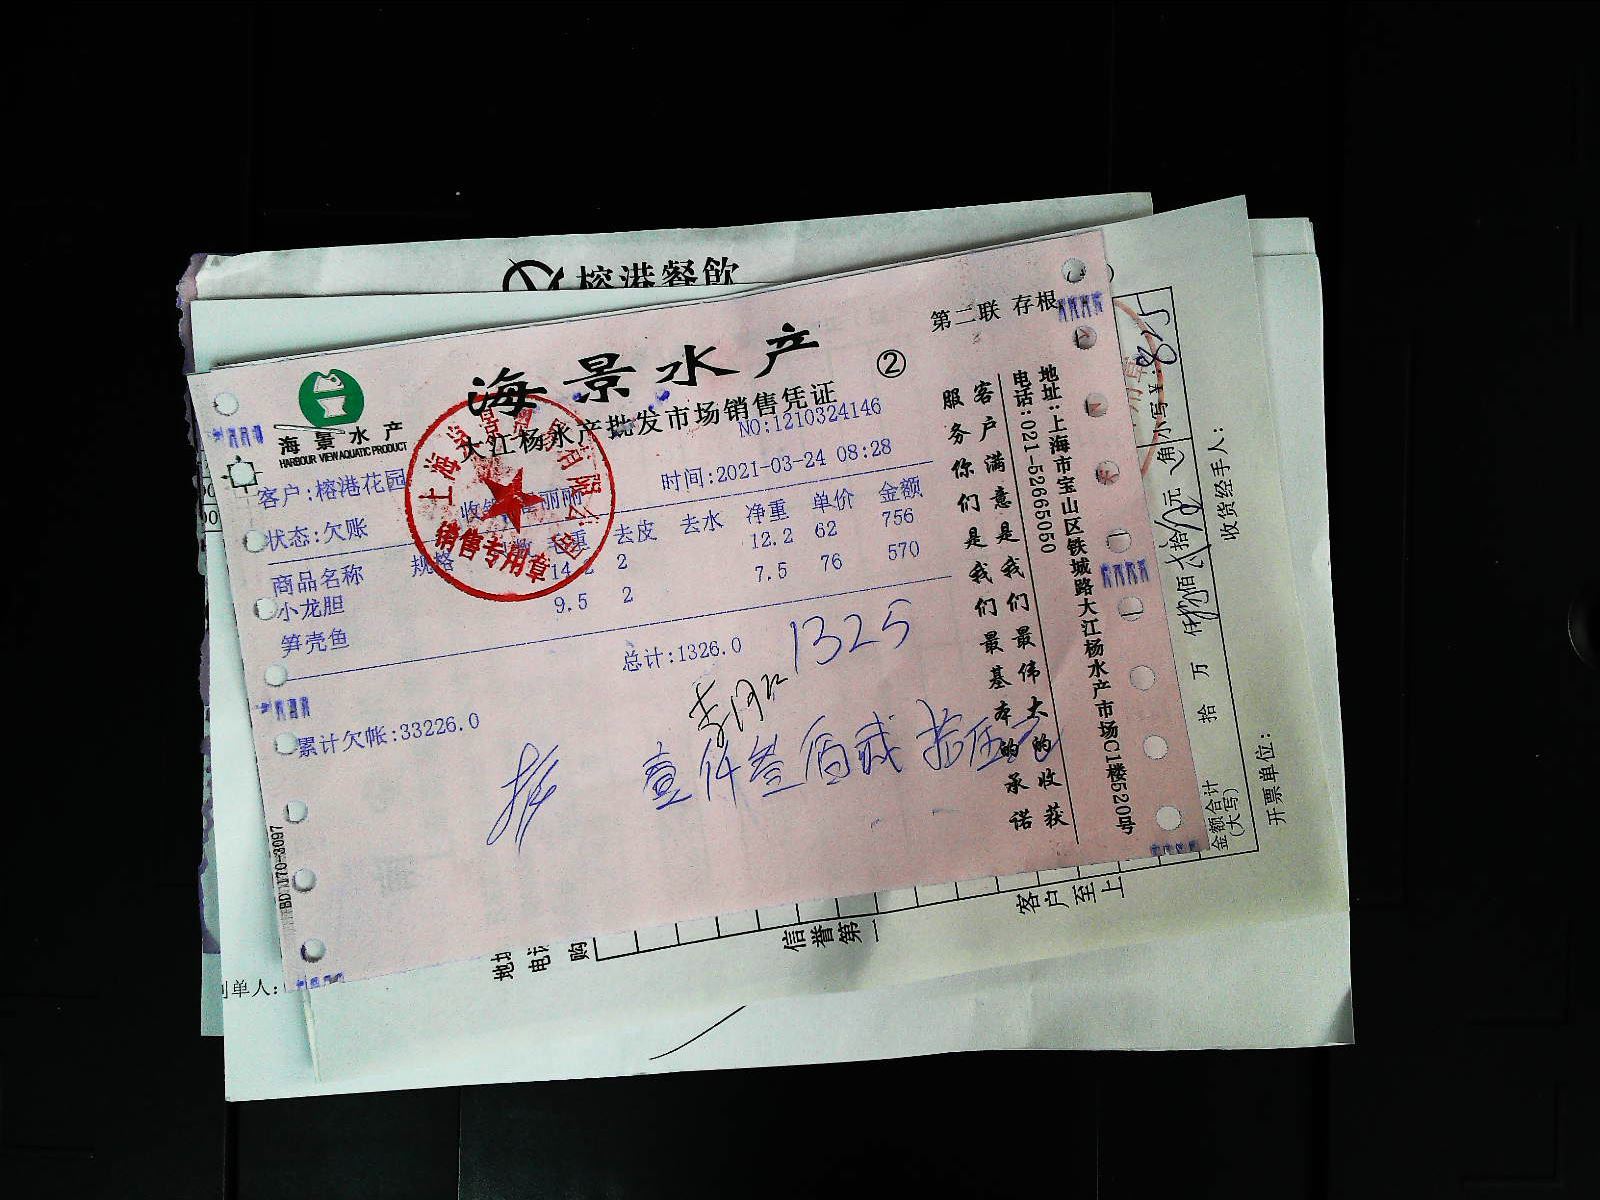 榕港餐飲
第二联 存根
海景水产
②
大江杨水产批发市场销售凭证
海景水产
HARBOUR VIEW AQUATIC PRODUCT
NO:1210324146
客户:榕港花园
时间:2021-03-24 08:28
状态:欠账
商品名称 规格 毛重 去皮 去水 净重 单价 金额
小龙胆 14.2 2 12.2 62 756
笋壳鱼 9.5 2 7.5 76 570
总计:1326.0
1325
累计欠帐:33226.0
壹仟叁佰贰拾伍元
销售专用章
客户满意是我们最伟大的收获
服务你们是我们最基本的承诺
地址:上海市宝山区铁城路大江杨水产市场C1楼520号
电话:021-52665050
BD 170-3097
小写¥:
金额合计
(大写)
拾 万
收货经手人:
开票单位:
客户至上
信誉第一
购
单人: